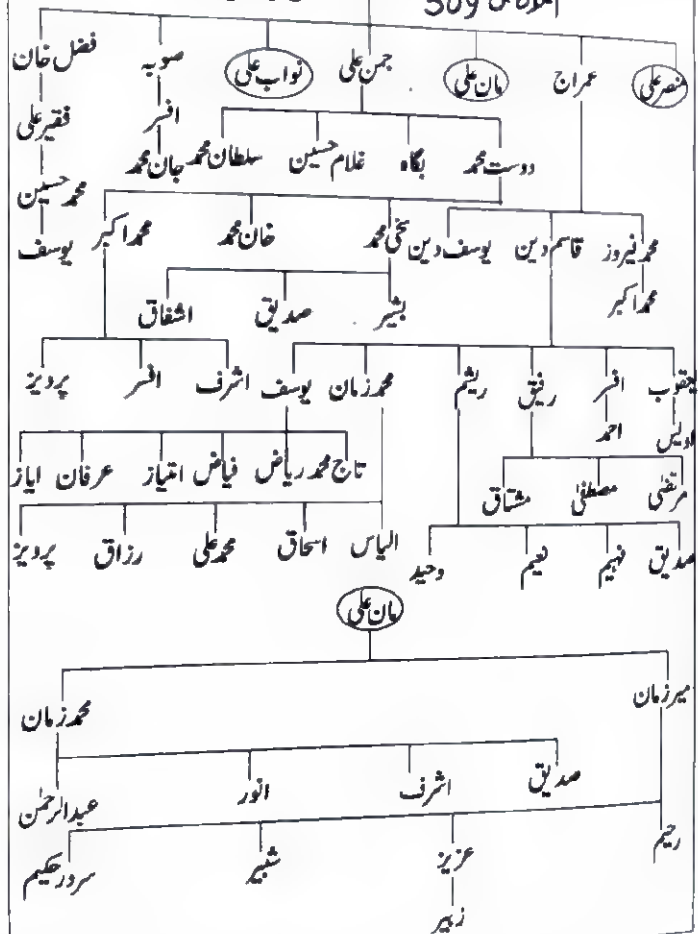 309
منصر علی عمراج مان علی جمن علی نواب علی صوبہ فضل خان
افسر فقیر علی
دوست محمد بگاہ غلام حسین سلطان محمد جان محمد
محمد حسین
محمد فیروز قاسم دین یوسف دین سخی محمد خان محمد محمد اکبر یوسف
محمد اکبر
بشیر صدیق اشفاق
یعقوب افسر رفیق ریشم محمد زمان یوسف اشرف افسر پرویز
اویس احمد
تاج محمد ریاض فیاض امتیاز عرفان ایاز
مرتضیٰ مصطفیٰ مشتاق
الیاس اسحاق محمد علی رزاق پرویز
صدیق فہیم نعیم وحید
مان علی
میر زمان محمد زمان
صدیق اشرف انور عبدالرحمٰن
رحیم عزیز شبیر سرور حکیم
زبیر